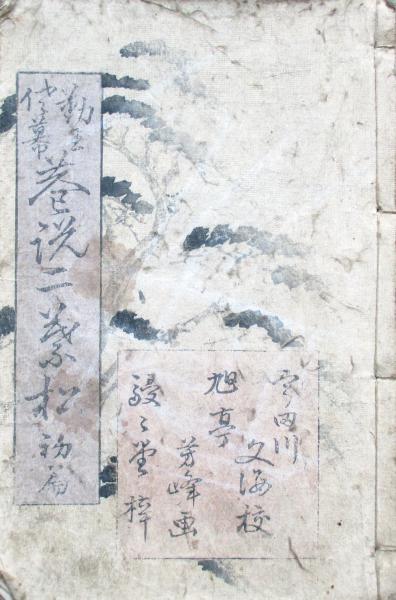 勤王
佐幕
巷説二葉松 初篇
宇田川
文海校
旭亭
芳峰画
駸々堂梓